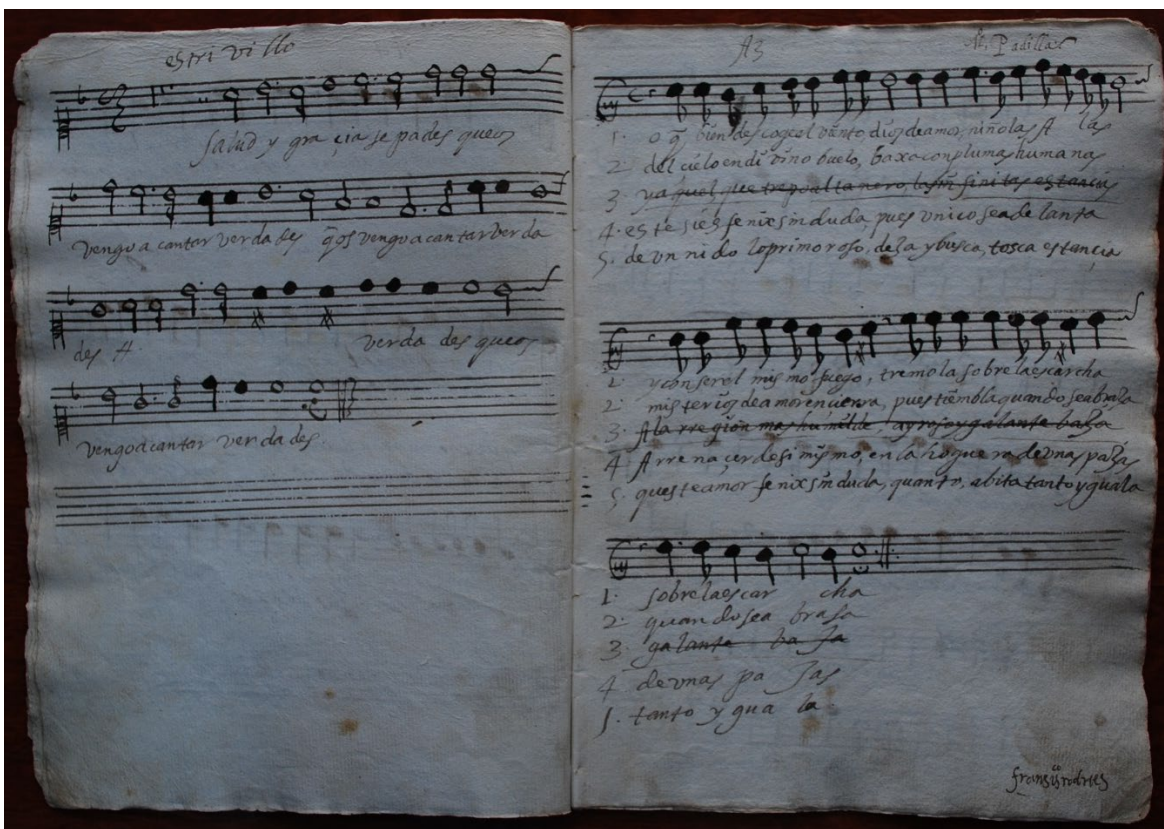 estri vi llo
salud y gra çia se pa des que os
vengo a cantar verdades q̄ os vengo a cantar verda
des A verda des que os
vengo a cantar ver da des
A3
M. Padilla
1. o q̄ bien descoge el vi͂nto, dios de amor, niño las A las
2. del cielo en di vino buelo, baxa con plumas humanas
3. ya quel que trepo altanero, las in fini tas estancias
4. es te si es fenix sin duda, pues unico se adelanta
5. de vn ni do lo primoroso, deja y busca, tosca estançia
1. y con ser el mis mo fuego, tremola sobre la escarcha
2. misterios de amor encierra, pues tiembla quando se abrasa
3. A la rregion mas humilde ayroso y galante baja
4. A rrena çer de si mismo, en la hoguera de vnas pajas
5. queste amor fenix sin duda, quanto, abita tanto yguala
1. sobre la escar cha
2. quando sea brasa
3. galante ba ja
4. de vnas pa jas
5. tanto y gua la